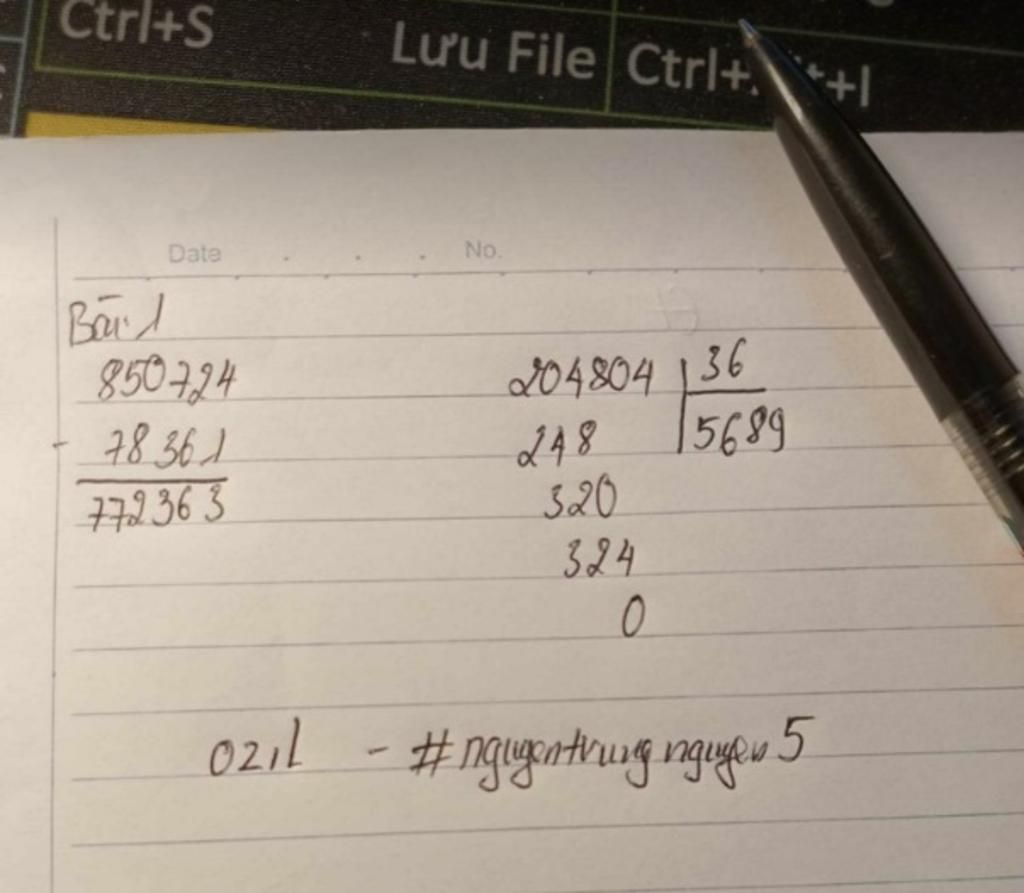 Ctrl+S Lưu File
Date . . . . No.
Bài 1
850724
- 78361
772363
204804 36
248 5689
320
324
0
ozil - #nguyentrungnguyen5